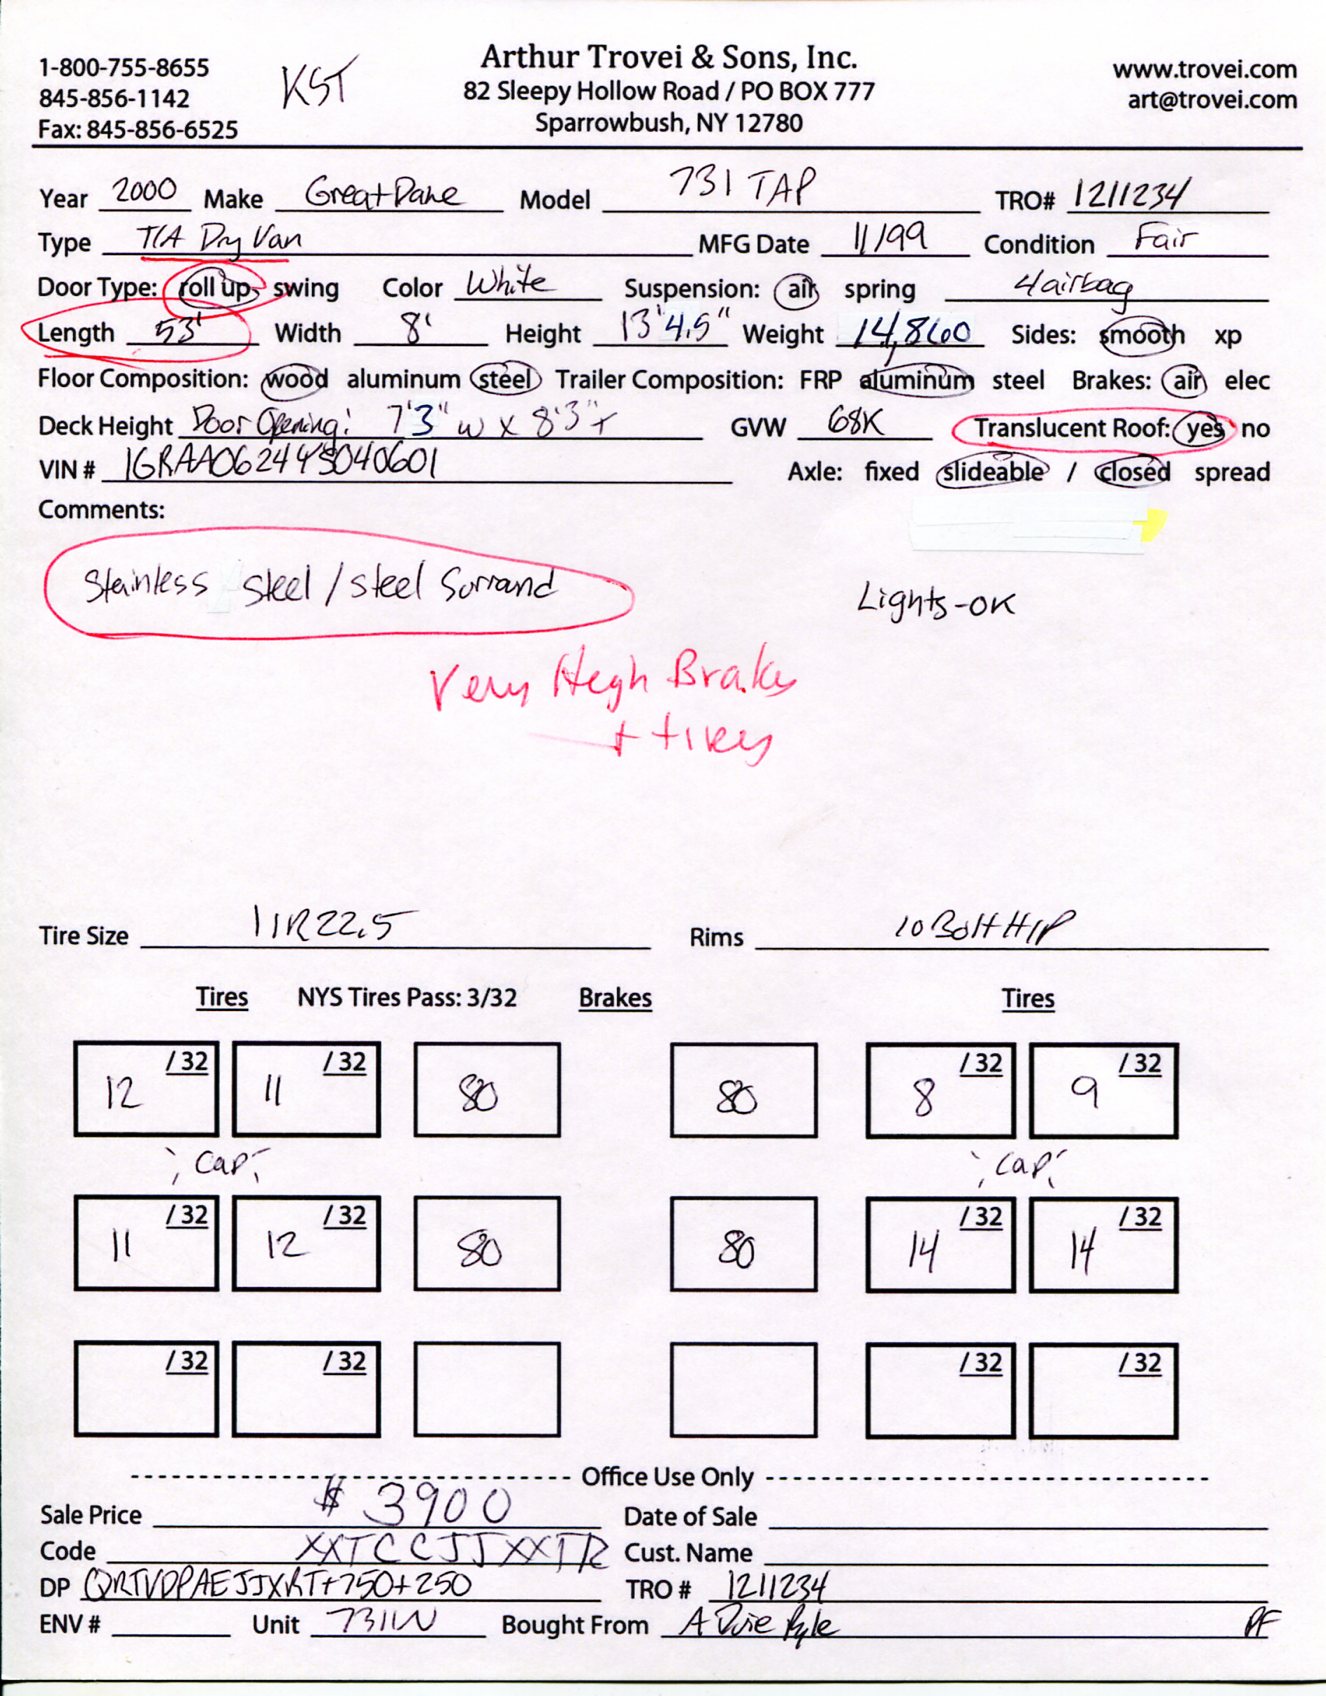 1-800-755-8655
845-856-1142
Fax: 845-856-6525
KST
Arthur Trovei & Sons, Inc.
82 Sleepy Hollow Road / PO BOX 777
Sparrowbush, NY 12780
www.trovei.com
art@trovei.com
Year 2000 Make Great Dane Model 731 TAP TRO# 1211234
Type T/A Dry Van MFG Date 11/99 Condition Fair
Door Type: roll up swing Color White Suspension: air spring 4airbag
Length 53' Width 8' Height 13'4.5" Weight 14,860 Sides: smooth xp
Floor Composition: wood aluminum steel Trailer Composition: FRP aluminum steel Brakes: air elec
Deck Height Door Opening: 7'3" w x 8'3"+ GVW 68K Translucent Roof: yes no
VIN # 1GRAA0624YS040601 Axle: fixed slideable / closed spread
Comments:
Stainless Steel / Steel Surrand
Lights-OK
Very High Brakes
+ tires
Tire Size 11R22.5 Rims 10 Bolt H/P
Tires NYS Tires Pass: 3/32 Brakes Tires
12 /32 11 /32 80 80 8 /32 9 /32
Cap Cap
11 /32 12 /32 80 80 14 /32 14 /32
/32 /32 /32 /32
Office Use Only
Sale Price $ 3900 Date of Sale
Code XXTCCJJXXTR Cust. Name
DP QRTVDPAEJJXRT+750+250 TRO # 1211234
ENV # Unit 7311W Bought From A Duie Pyle PF